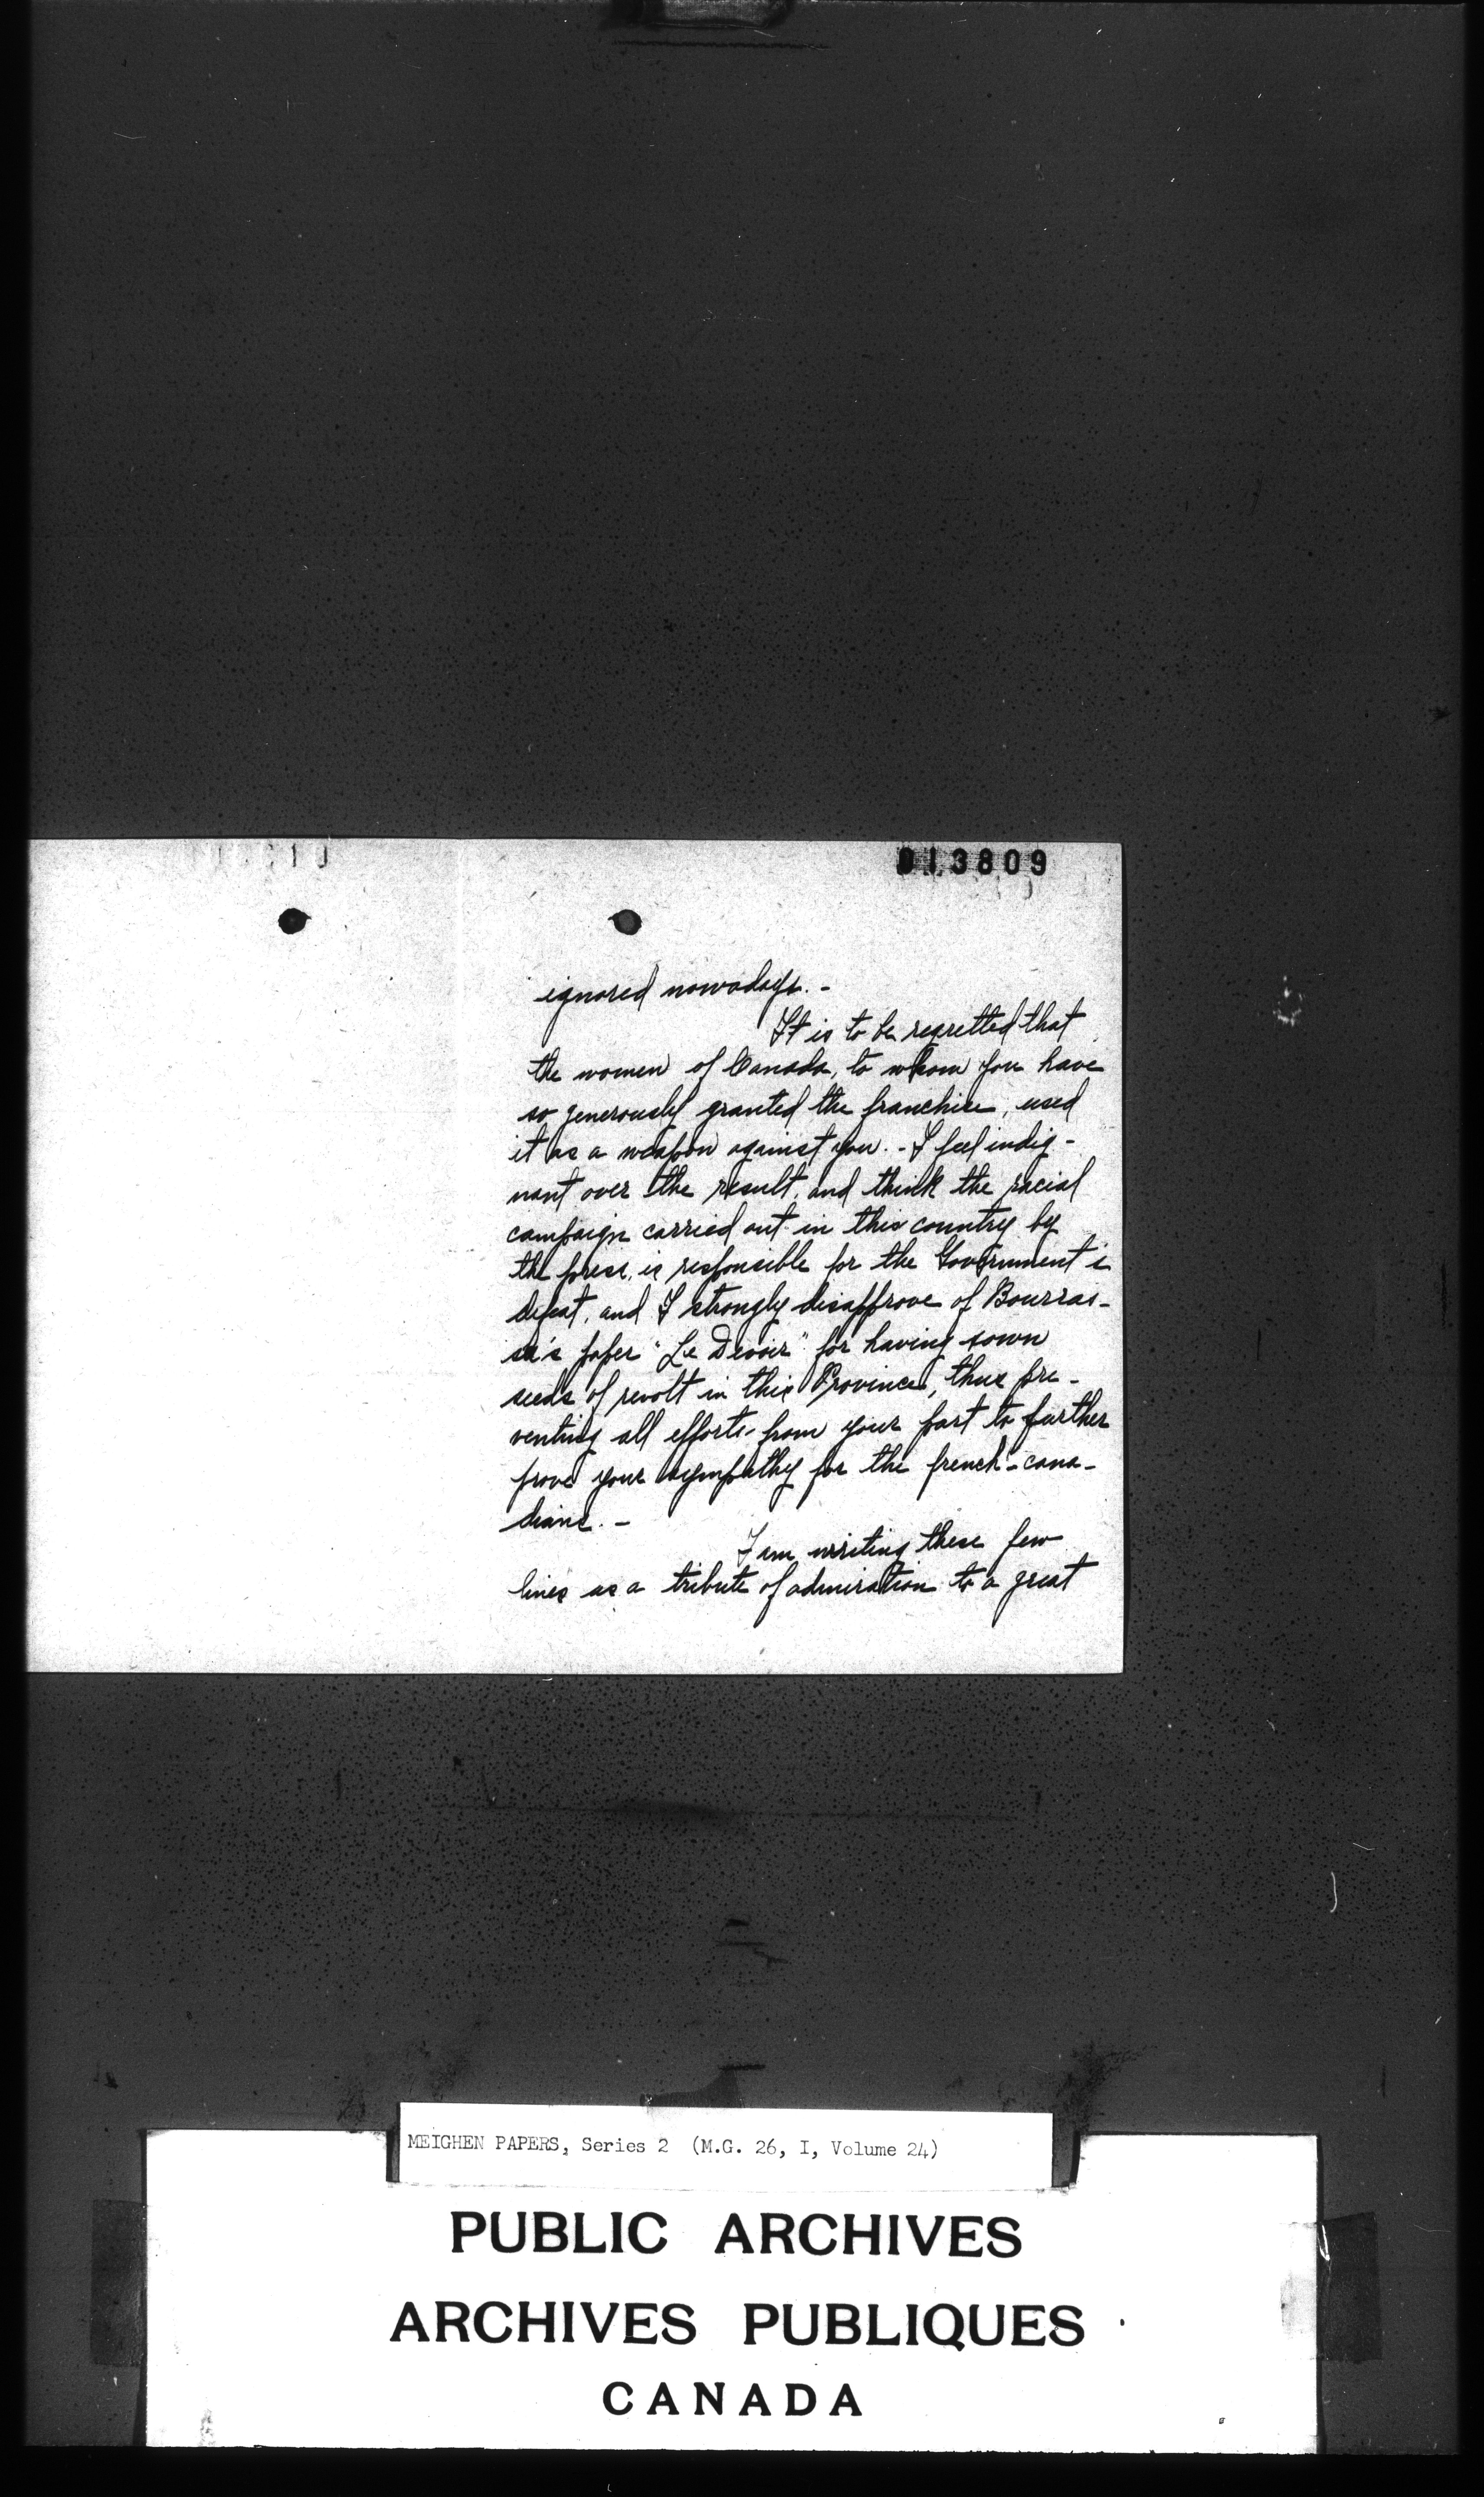 013809
ignored nowadays. -
It is to be regretted that
the women of Canada, to whom you have
so generously granted the franchise, used
it as a weapon against you. - I feel indig-
nant over the result, and think the racial
campaign carried out in this country by
the press, is responsible for the Government's
defeat, and I strongly disapprove of Bourras-
sa's paper "Le Devoir" for having sown
seeds of revolt in this Province, thus pre-
venting all efforts from your part to further
prove your sympathy for the french-cana-
dians. -
I am writing these few
lines as a tribute of admiration to a great
MEIGHEN PAPERS, Series 2 (M.G. 26, I, Volume 24)
PUBLIC ARCHIVES
ARCHIVES PUBLIQUES
CANADA